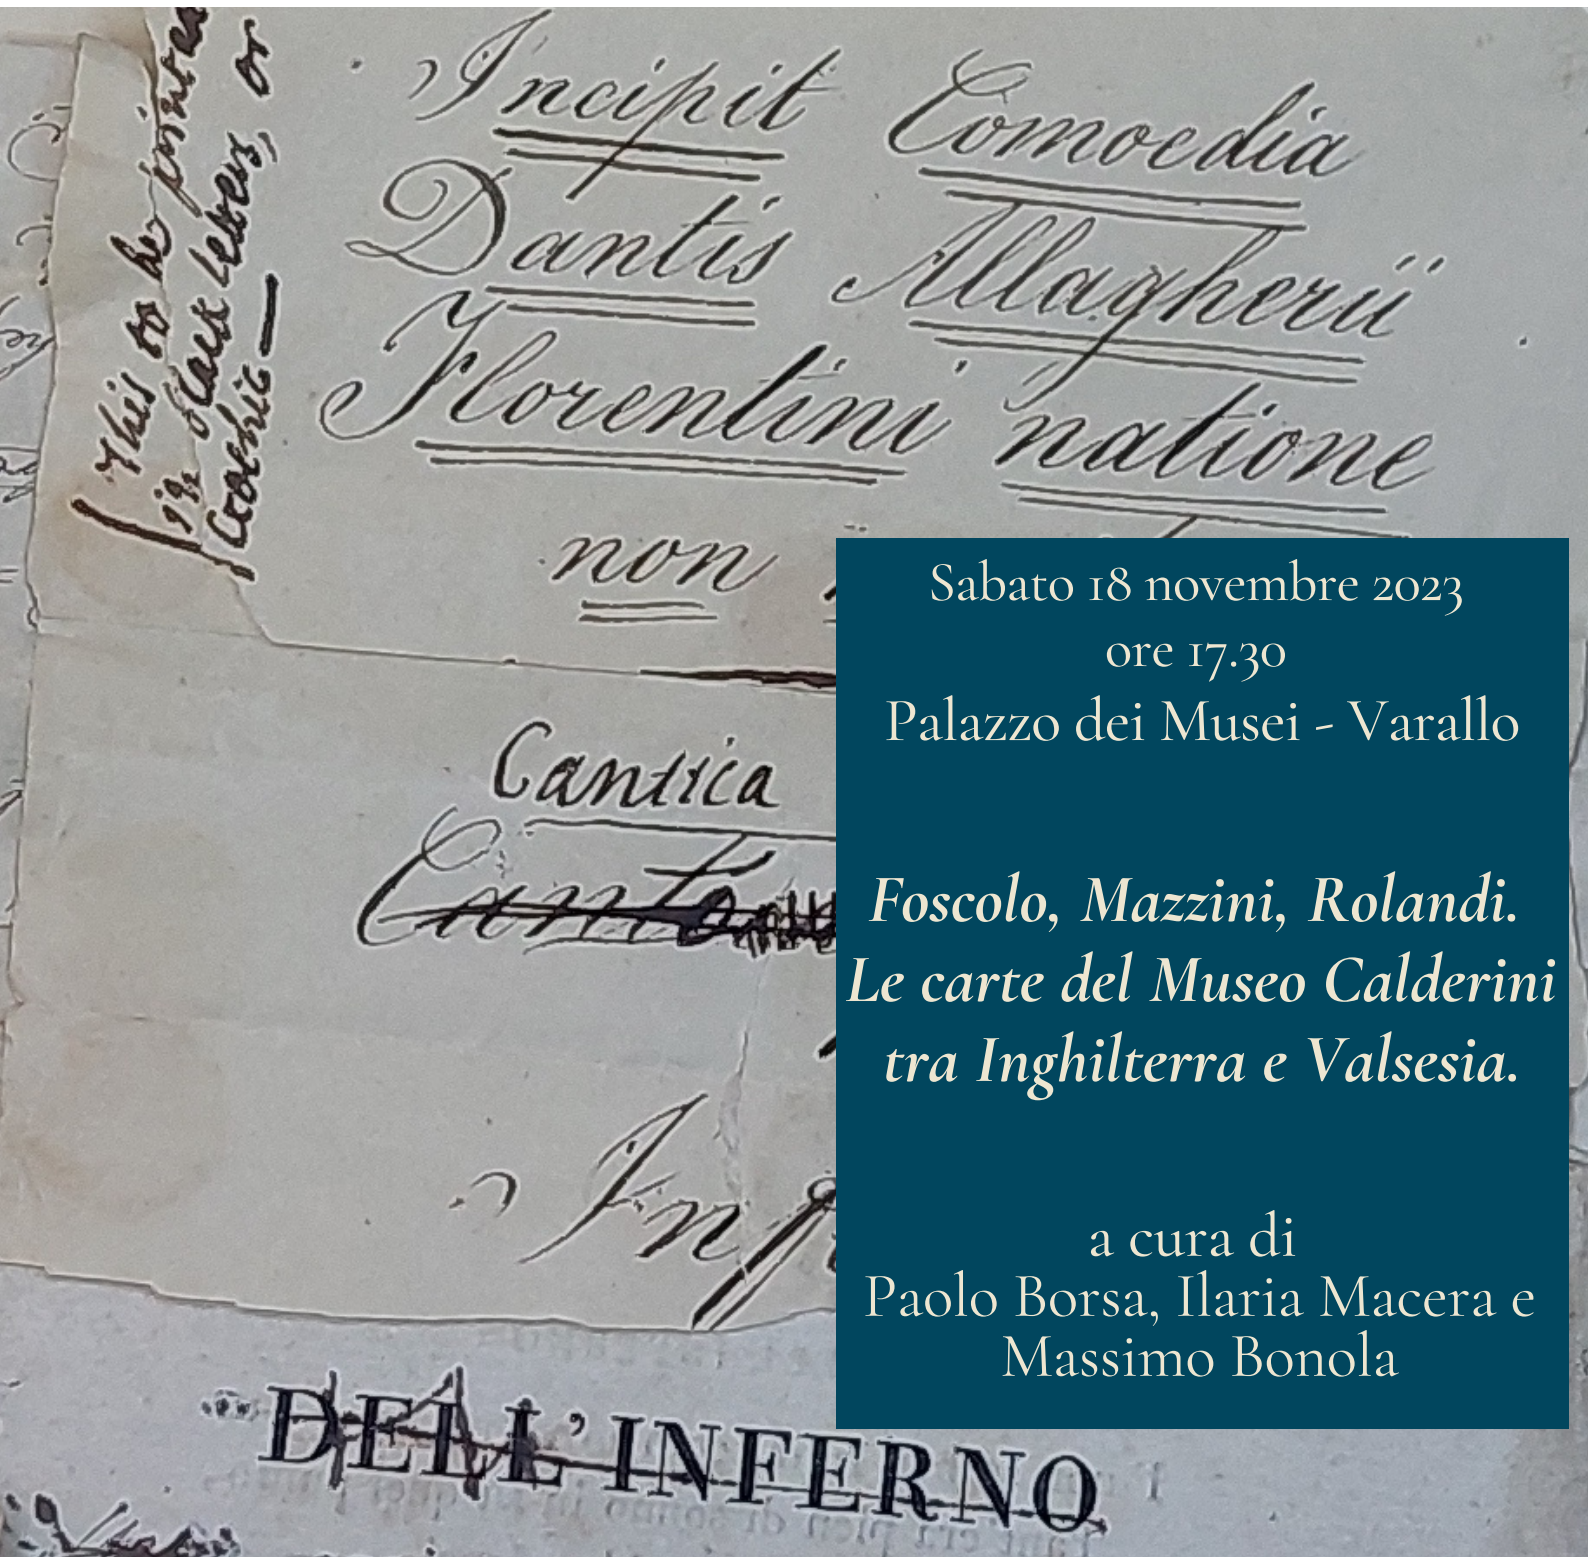 This to be printed
in black letters, or
Gothic —
Incipit Comoedia
Dantis Allagherii
Florentini natione
non
Cantica
Canto
Inf
DELL'INFERNO
Sabato 18 novembre 2023
ore 17.30
Palazzo dei Musei - Varallo
Foscolo, Mazzini, Rolandi.
Le carte del Museo Calderini
tra Inghilterra e Valsesia.
a cura di
Paolo Borsa, Ilaria Macera e
Massimo Bonola